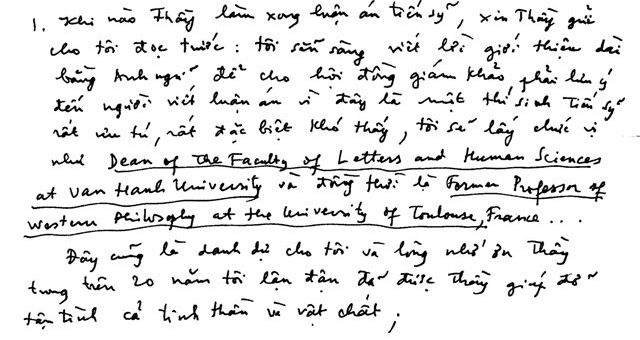 1. Khi nào Thầy làm xong luận án tiến sỹ, xin Thầy gửi
cho tôi đọc trước: tôi sẵn sàng viết lời giới thiệu dài
bằng Anh ngữ để cho hội đồng giám khảo phải lưu ý
đến người viết luận án vì đây là một thí sinh Tiến sỹ
rất ưu tú, rất đặc biệt khó thấy, tôi sẽ lấy chức vị
như Dean of the Faculty of Letters and Human Sciences
at Van Hanh University và đồng thời là Former Professor of
Western Philosophy at the University of Toulouse, France...
Đây cũng là danh dự cho tôi và lòng nhớ ơn Thầy
trong trên 20 năm tôi lận đận đã được Thầy giúp đỡ
tận tình cả tinh thần và vật chất;